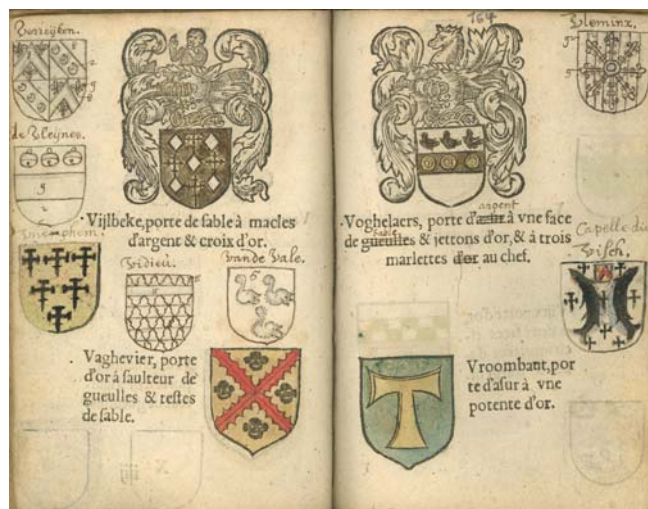 de Vleijnes.
Vijlbeke, porte de sable à macles
d'argent & croix d'or.
Vidieu.
van de Vale.
Vaghevier, porte
d'or á saulteur de
gueulles & testes
de sable.
164
Vleminx.
argent
Voghelaers, porte d'asur à vne face
sable
de gueulles & jettons d'or, & à trois
marlettes d'or au chef.
Capelle du
Visch.
Vroombaut, por
te d'asur à vne
potente d'or.